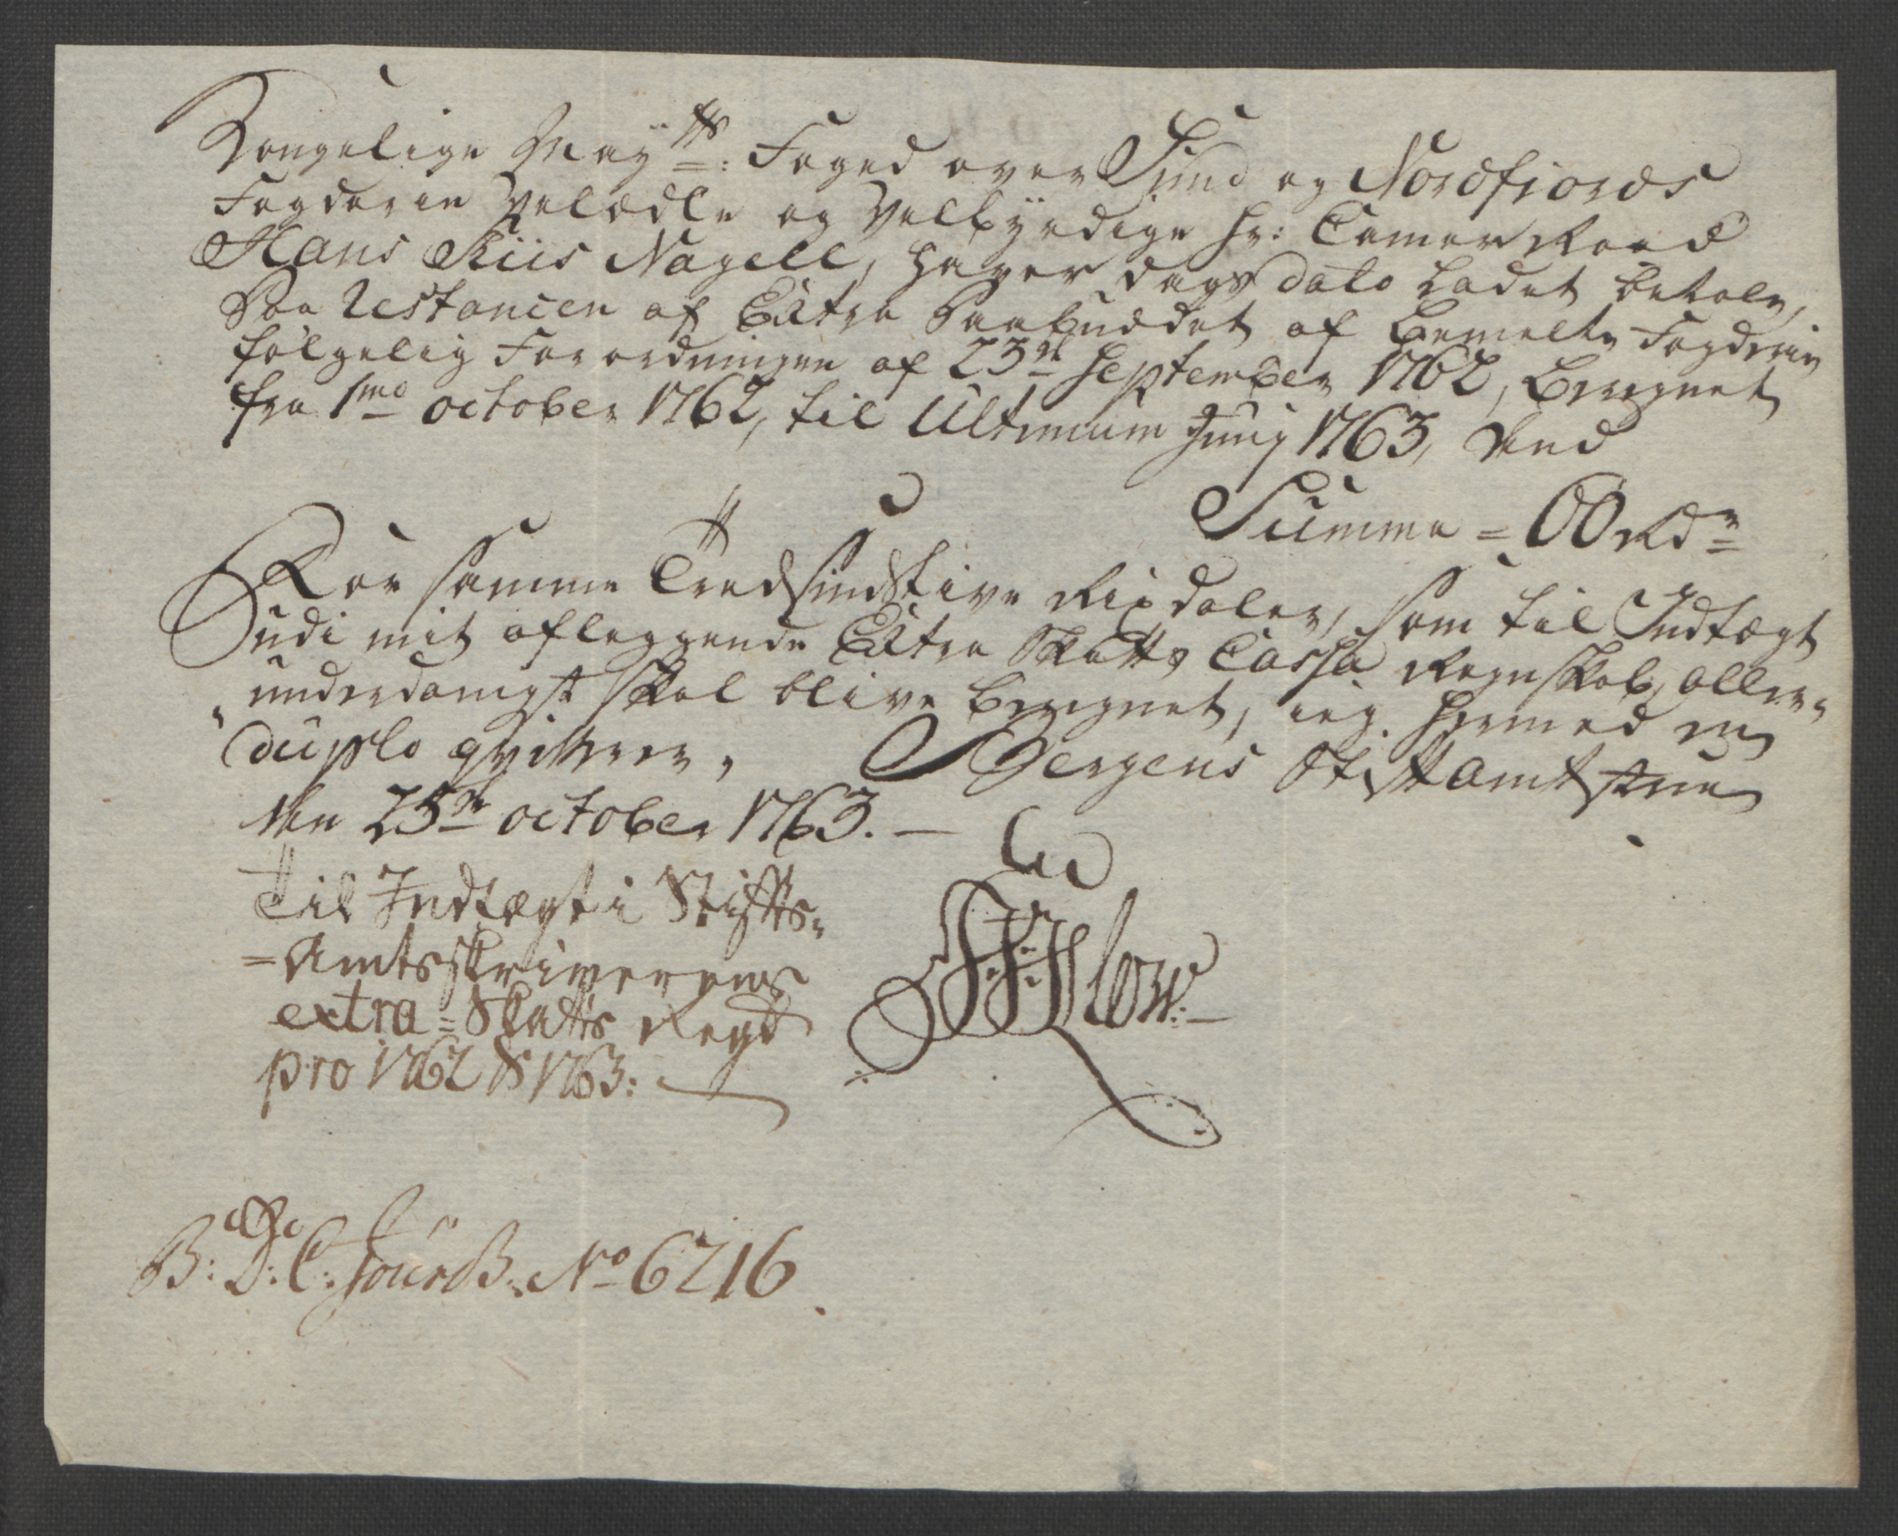 Kongelige Mayts: Foged over Sund og Nordfiords
Fogderie Velædle og Velbyrdige Hr: Camer Raad
Hans Riis Nagell, haver dags dato ladet betale,
Paa Restancen af Extra Paabuddet af bemelte Fogderie
følgelig Forordningen af 23de September 1762, bereignet
fra 1mo october 1762, til Ultimum Junij 1763, Med
Summa = 60 Rdr
For samme Tredsindstive Rixdaler, som til Indtægt
Udi mit aflæggende Extra Skatts Cassa Regnskab, aller-
underdanigst skal blive bereignet, ieg hermed in
duplo qvitterer, Bergens Stiftamtstue
den 25de october 1763.
Til Indtægt i Stifts-
=Amtsskriverens
extra=Skatts Regsk
pro 1762 & 1763:
B: D: C: Jour B: No 6216